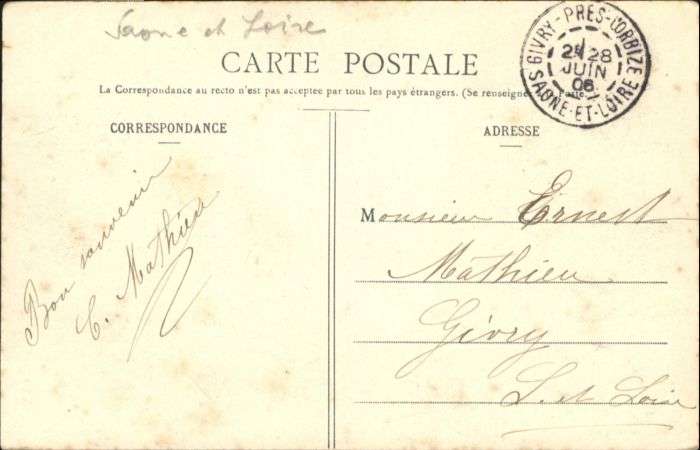 Saone et Loire
CARTE POSTALE
La Correspondance au recto n'est pas acceptée par tous les pays étrangers. (Se renseigner Poste.)
GIVRY-PRES-L'ORBIZE
2E 28
JUIN
06
SAONE-ET-LOIRE
CORRESPONDANCE
ADRESSE
Bon souvenir
C. Mathieu
Monsieur Ernest
Mathieu
Givry
S. et Loire